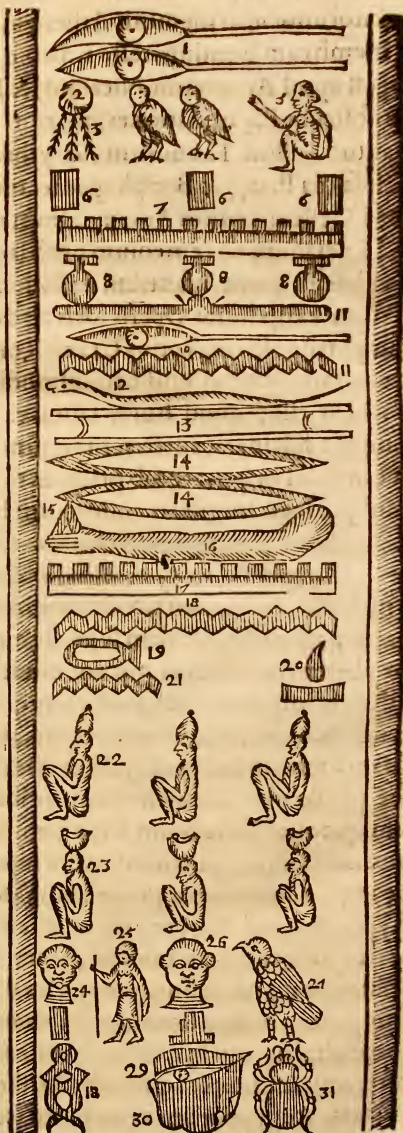 1
2 3 5
6 6 6
7
8 8 8
11
10
11
12
13
14
14
15 16
17
18
19 20
21
22
23
24 25 26 27
18 29 31
30